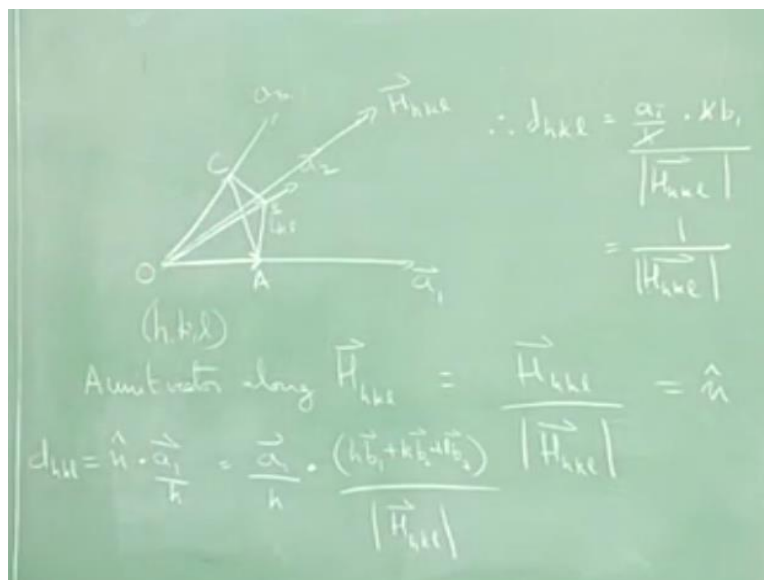 C
H⃗ₕₖₗ
a⃗₂
O
A
a⃗₁
(h,k,l)
∴ dₕₖₗ = a₁/h · h b₁ / |H⃗ₕₖₗ|
= 1 / |H⃗ₕₖₗ|
A unit vector along H⃗ₕₖₗ = H⃗ₕₖₗ / |H⃗ₕₖₗ| = n̂
dₕₖₗ = n̂ · a⃗₁/h = a⃗₁/h · (h b⃗₁ + k b⃗₂ + l b⃗₃) / |H⃗ₕₖₗ|